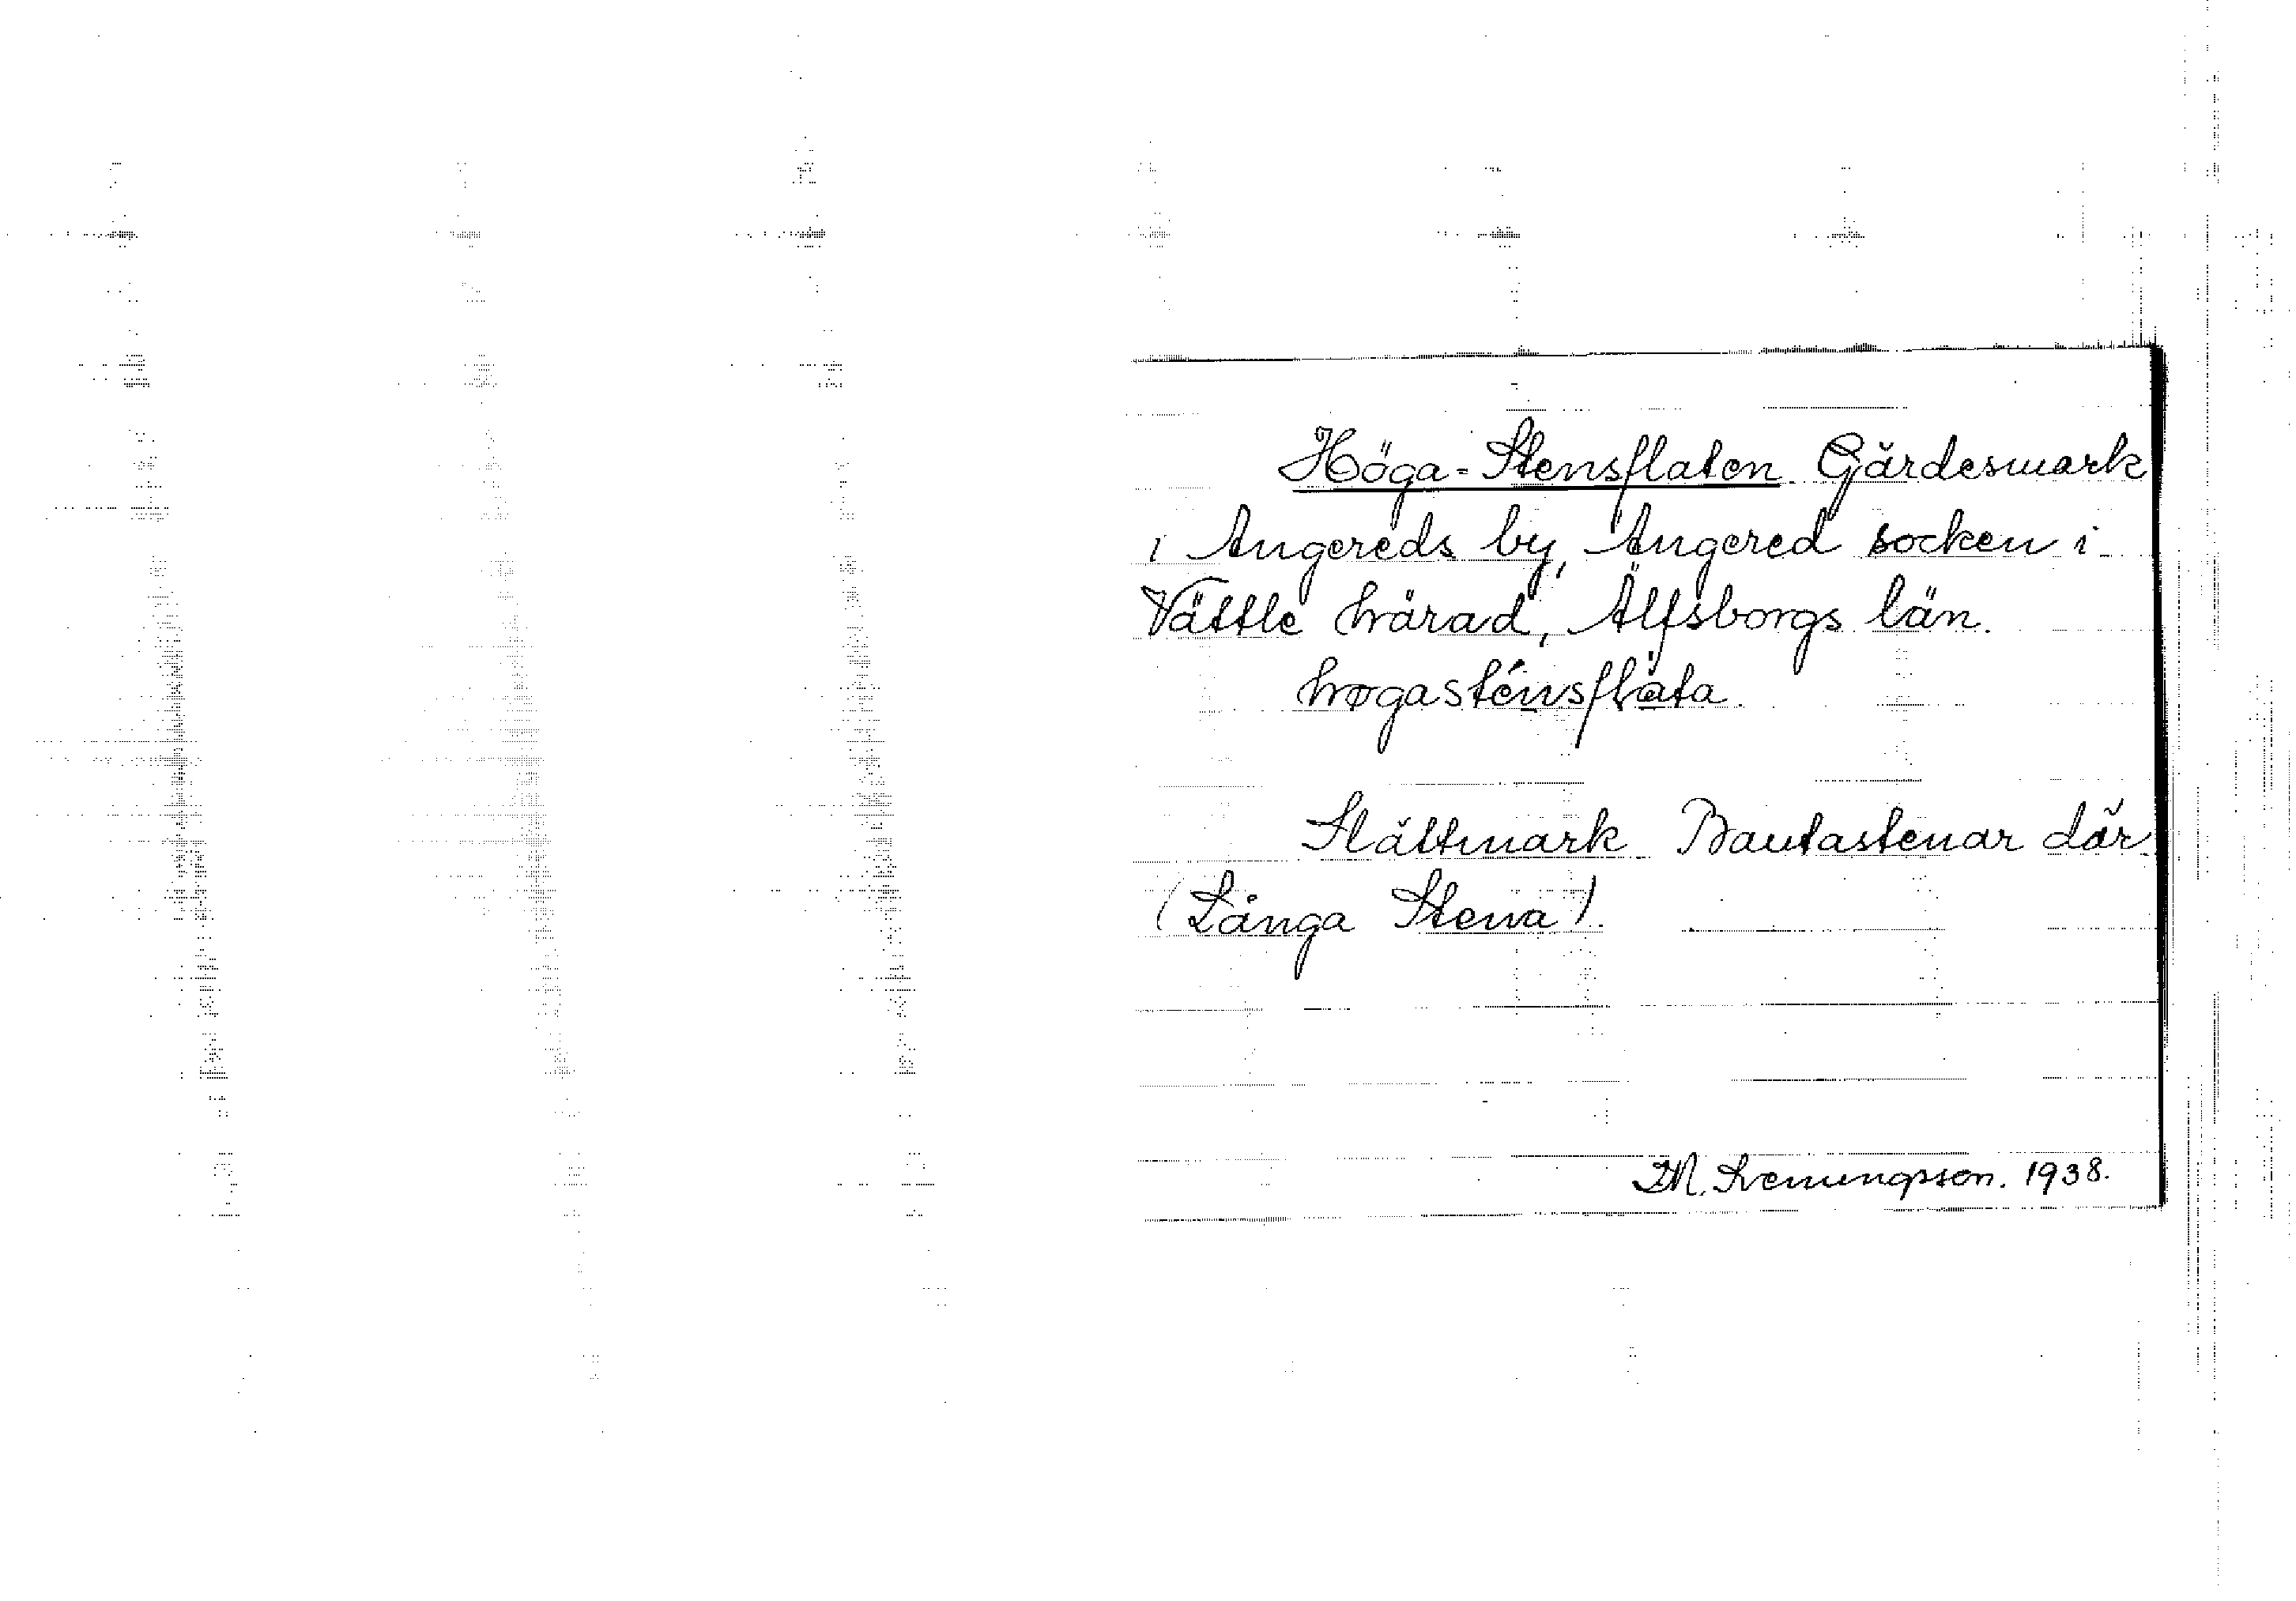 Höga-Stensflaten. Gärdesmark
i Angereds by, Angered socken i
Vättle härad, Älfsborgs län.
høgasténsflàta.
Slättmark. Bautastenar där.
(Långa Stena).
1938.